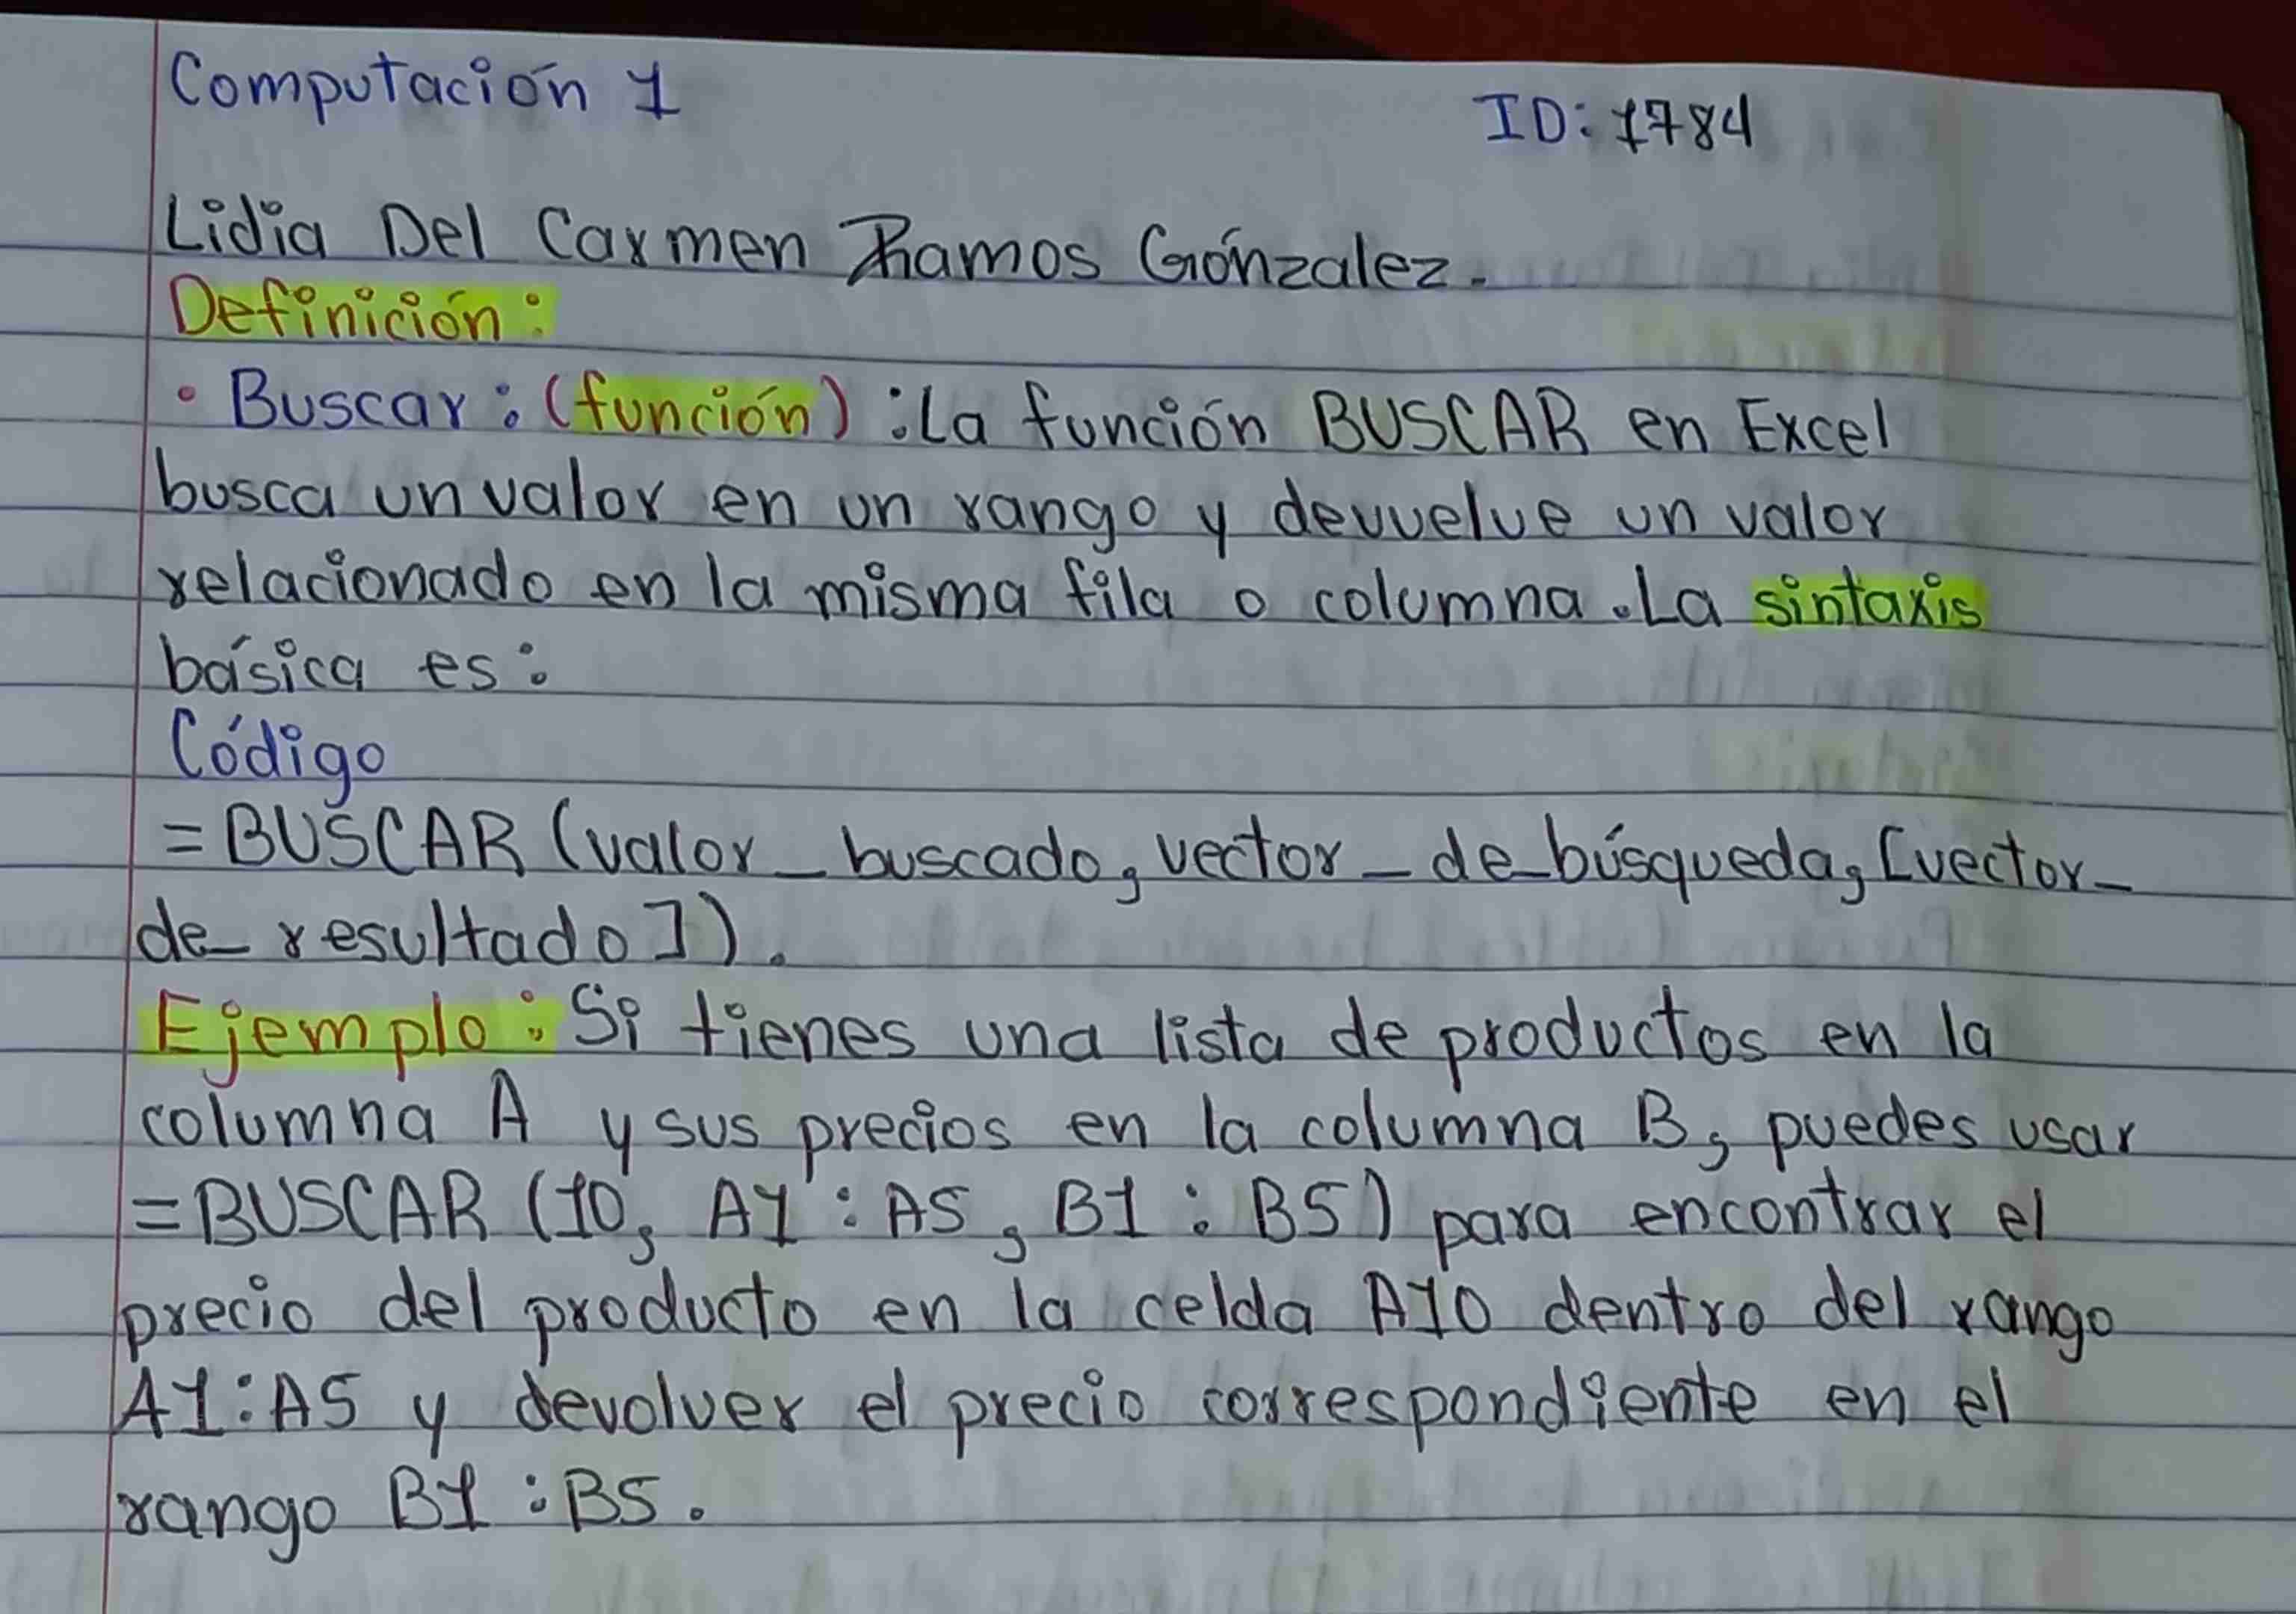 Computación 1
ID: 1784
Lidia Del Carmen Ramos Gónzalez.
Definición:
• Buscar: (función): La función BUSCAR en Excel
busca un valor en un rango y devuelve un valor
relacionado en la misma fila o columna. La sintaxis
básica es:
Código
=BUSCAR (valor_buscado, vector_de_búsqueda, [vector_
de_resultado]).
Ejemplo: Si tienes una lista de productos en la
columna A y sus precios en la columna B, puedes usar
=BUSCAR (10, A1:A5, B1:B5) para encontrar el
precio del producto en la celda A10 dentro del rango
A1:A5 y devolver el precio correspondiente en el
rango B1:B5.